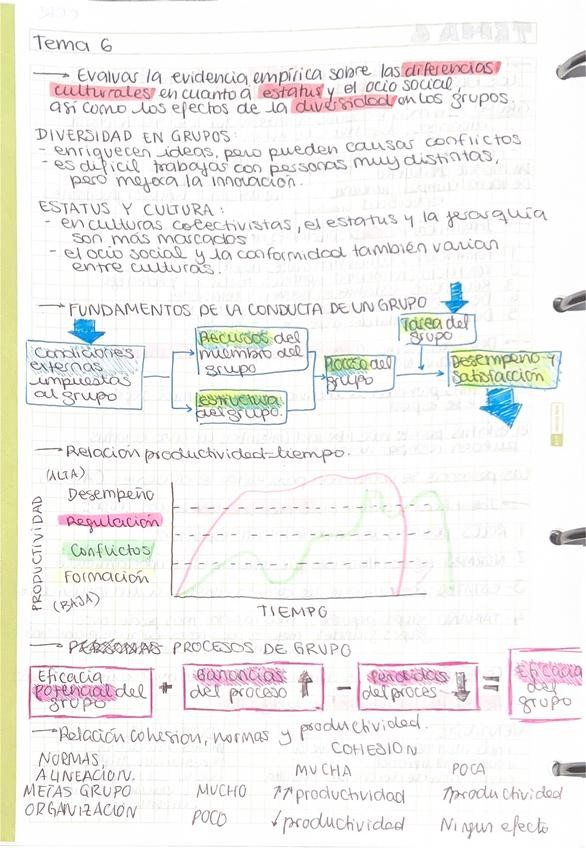 Tema 6
→ Evaluar la evidencia empírica sobre las diferencias
culturales en cuanto a estatus y el ocio social,
así como los efectos de la diversidad en los grupos.
DIVERSIDAD EN GRUPOS:
- enriquecen ideas, pero pueden causar conflictos
- es difícil trabajar con personas muy distintas,
pero mejora la innovación.
ESTATUS Y CULTURA:
- en culturas colectivistas, el estatus y la jerarquía
son más marcados
- el ocio social y la conformidad también varían
entre culturas.
→ FUNDAMENTOS DE LA CONDUCTA DE UN GRUPO
Condiciones
externas
impuestas
al grupo
Recursos del
miembro del
grupo
estructura
del grupo.
Proceso del
grupo
Tarea del
grupo
Desempeño y
satisfacción
→ Relación productividad-tiempo.
PRODUCTIVIDAD
(ALTA)
Desempeño
Regulación
Conflictos
Formación
(BAJA)
TIEMPO
→ PROCESOS DE GRUPO
Eficacia
potencial del
grupo
+
Ganancias
del proceso ↑
-
Perdidas
del proces ↓
=
Eficacia
del
grupo
→ Relación cohesion, normas y productividad.
COHESION
NORMAS, MUCHA POCA
ALINEACIÓN.
METAS GRUPO MUCHO ↑↑productividad ↑productividad
ORGANIZACIÓN
POCO ↓productividad Ningun efecto